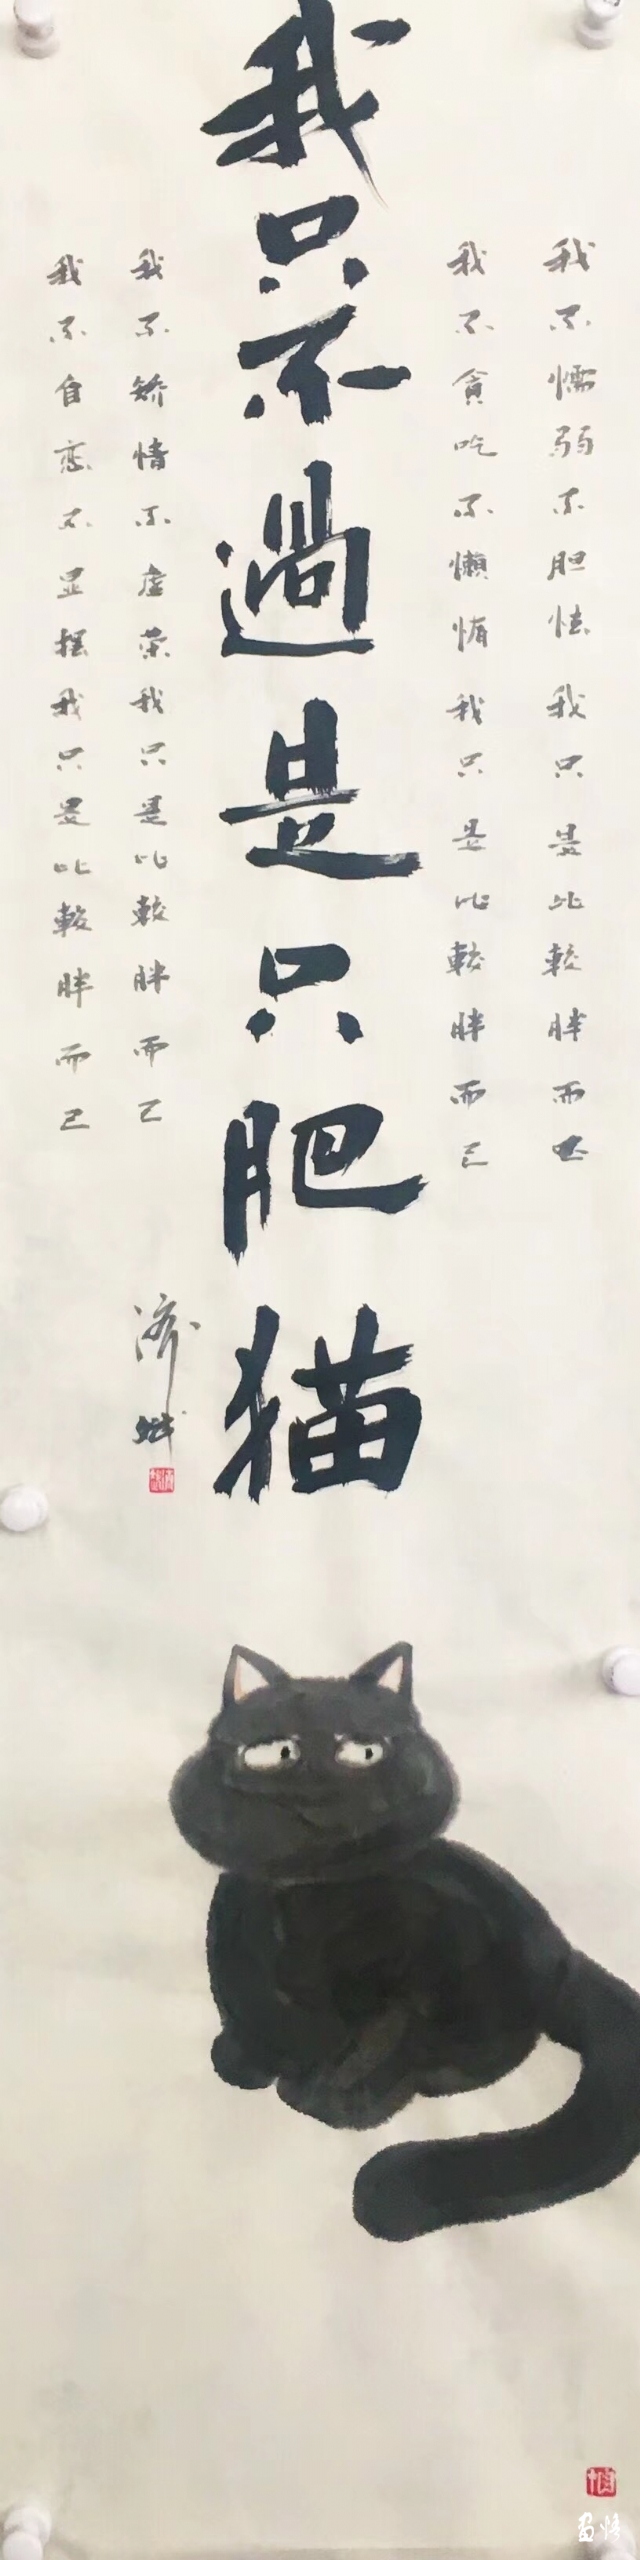 我不懦弱不胆怯我只是比較胖而已
我不貪吃不懒惰我只是比較胖而已
我只不過是只肥猫
我不矫情不虚荣我只是比較胖而已
我不自恋不显摆我只是比較胖而已